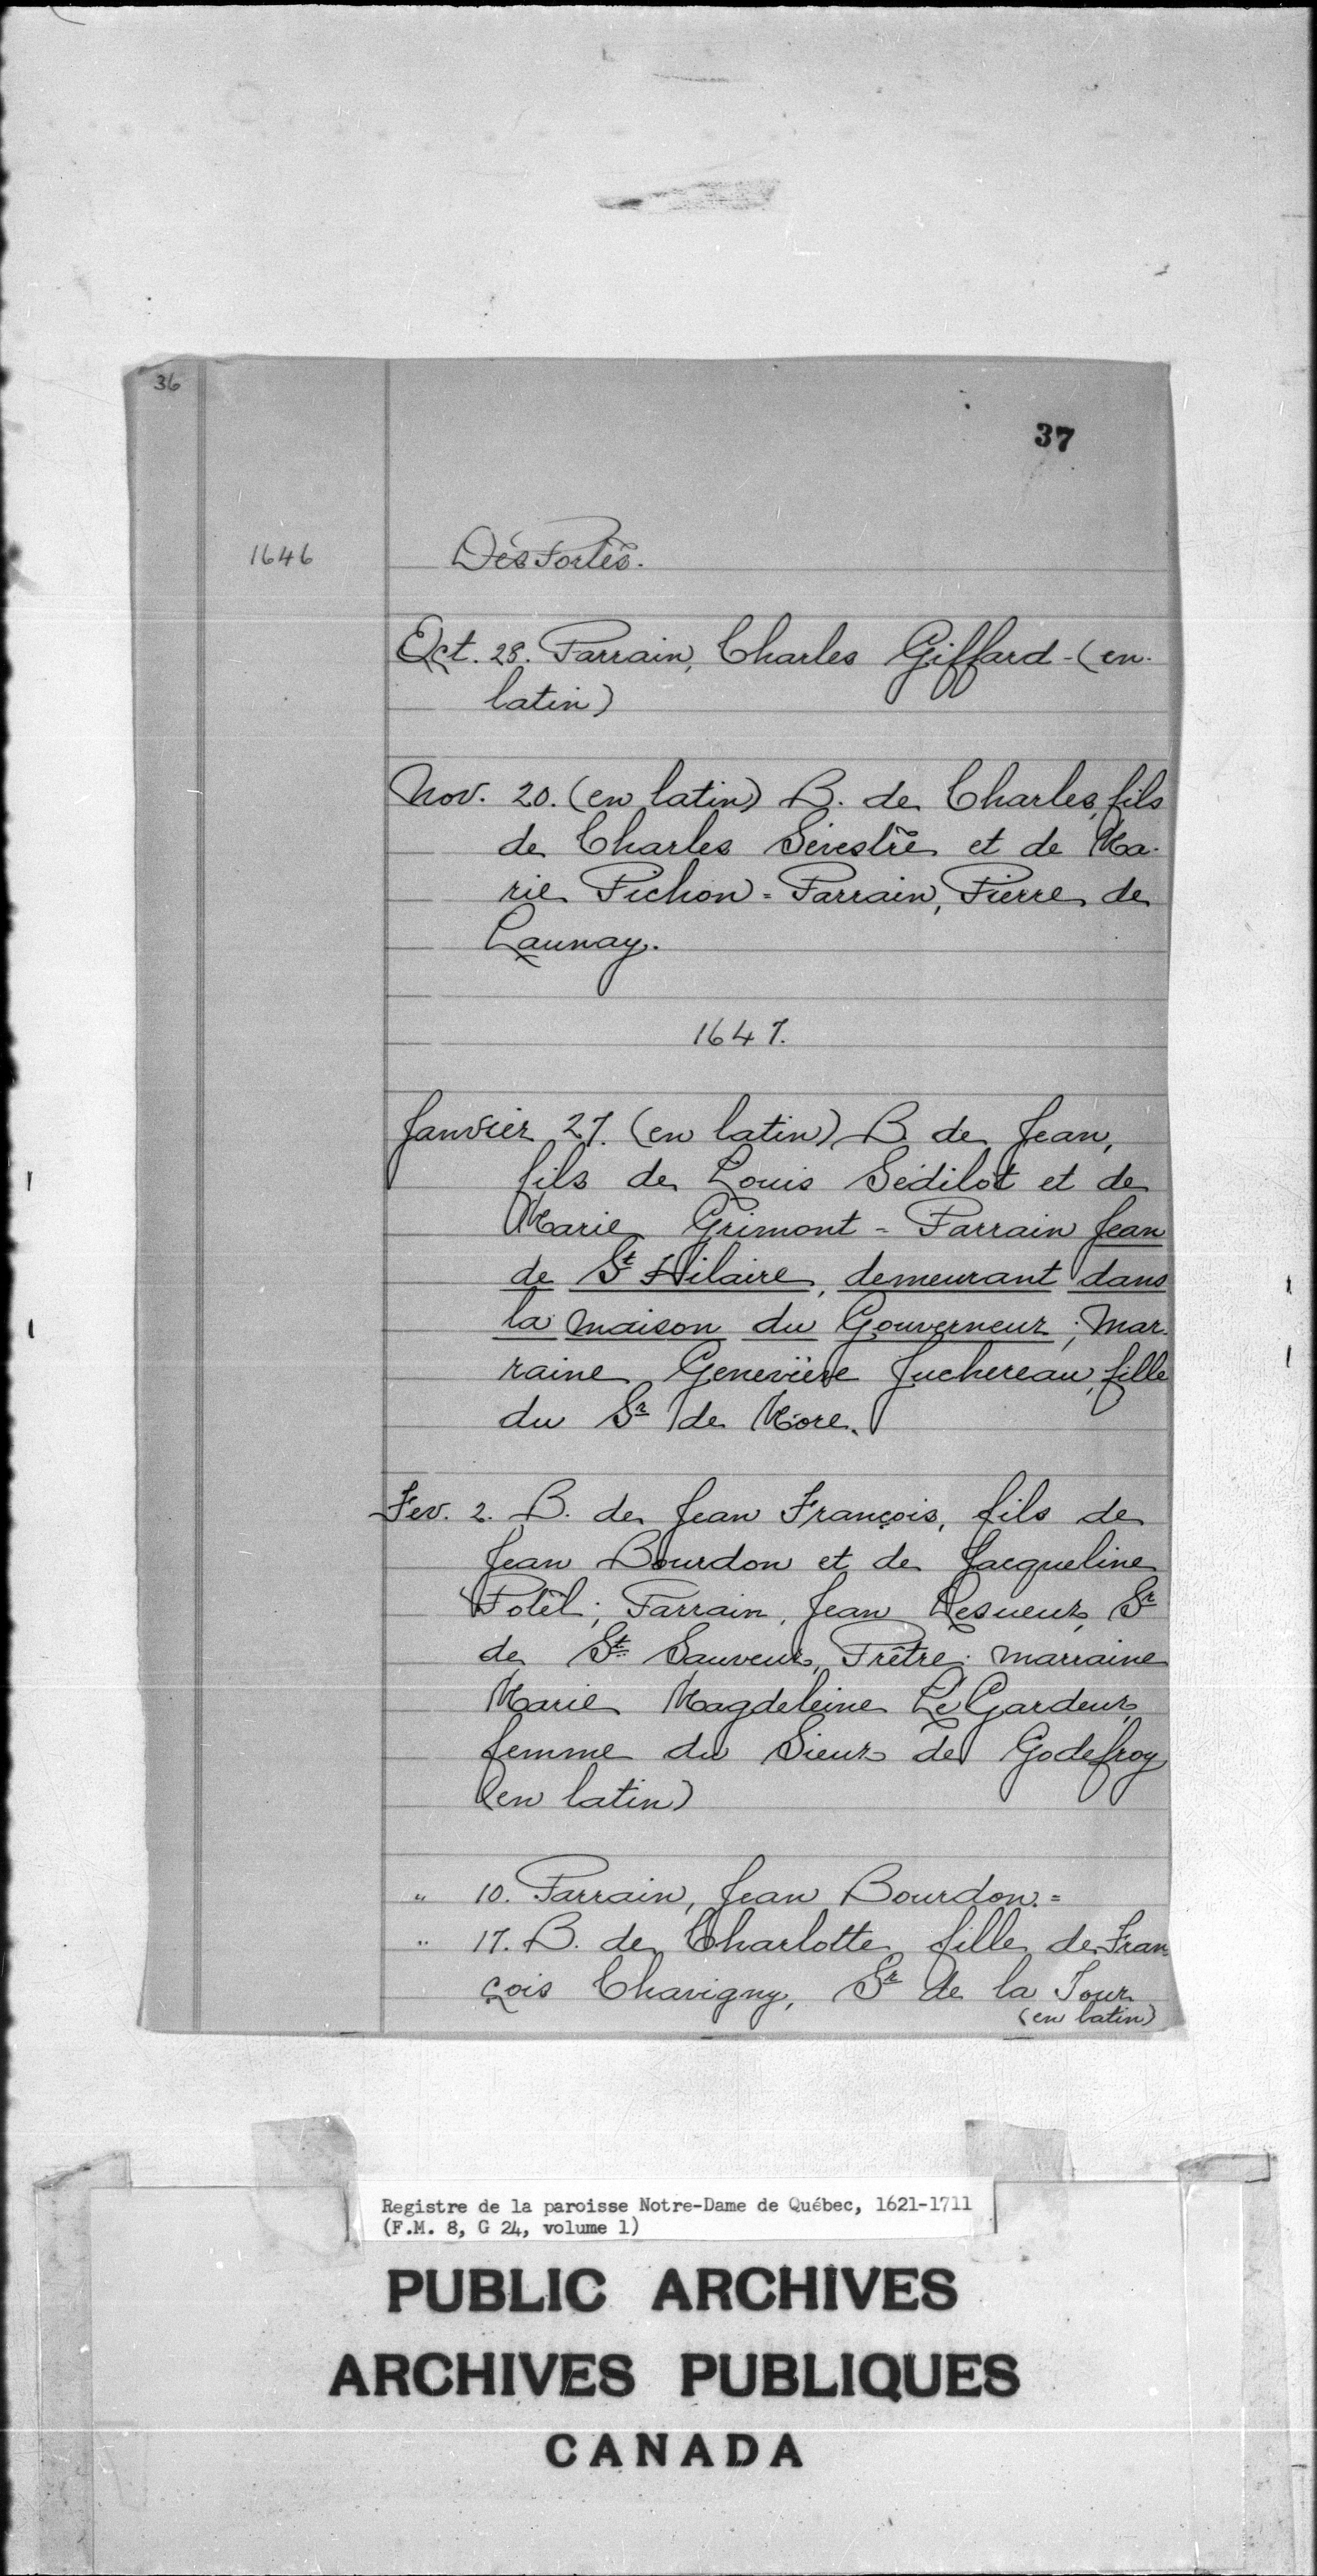 36
37
1646
DesPortes.
Oct. 28. Parrain, Charles Giffard - (en
latin)
Nov. 20. (en latin) B. de Charles, fils
de Charles Sevestre et de Ma-
rie Pichon = Parrain, Pierre de
Launay.
1647.
Janvier 27. (en latin) B. de Jean,
fils de Louis Sédilot et de
Marie Grimont = Parrain Jean
de St Hilaire, demeurant dans
la maison du Gouverneur; Mar-
raine Geneviève Juchereau, fille
du Sr de More.
Fev. 2. B. de Jean François, fils de
Jean Bourdon et de Jacqueline
Potel; Parrain, Jean Lesueur, Sr
de St Sauveur, Prêtre; marraine
Marie Magdeleine LeGardeur,
femme du Sieur de Godefroy
(en latin)
" 10. Parrain, Jean Bourdon. =
" 17. B. de Charlotte fille de Fran-
çois Chavigny, Sr de la Tour
(en latin)
Registre de la paroisse Notre-Dame de Québec, 1621-1711
(F.M. 8, G 24, volume 1)
PUBLIC ARCHIVES
ARCHIVES PUBLIQUES
CANADA